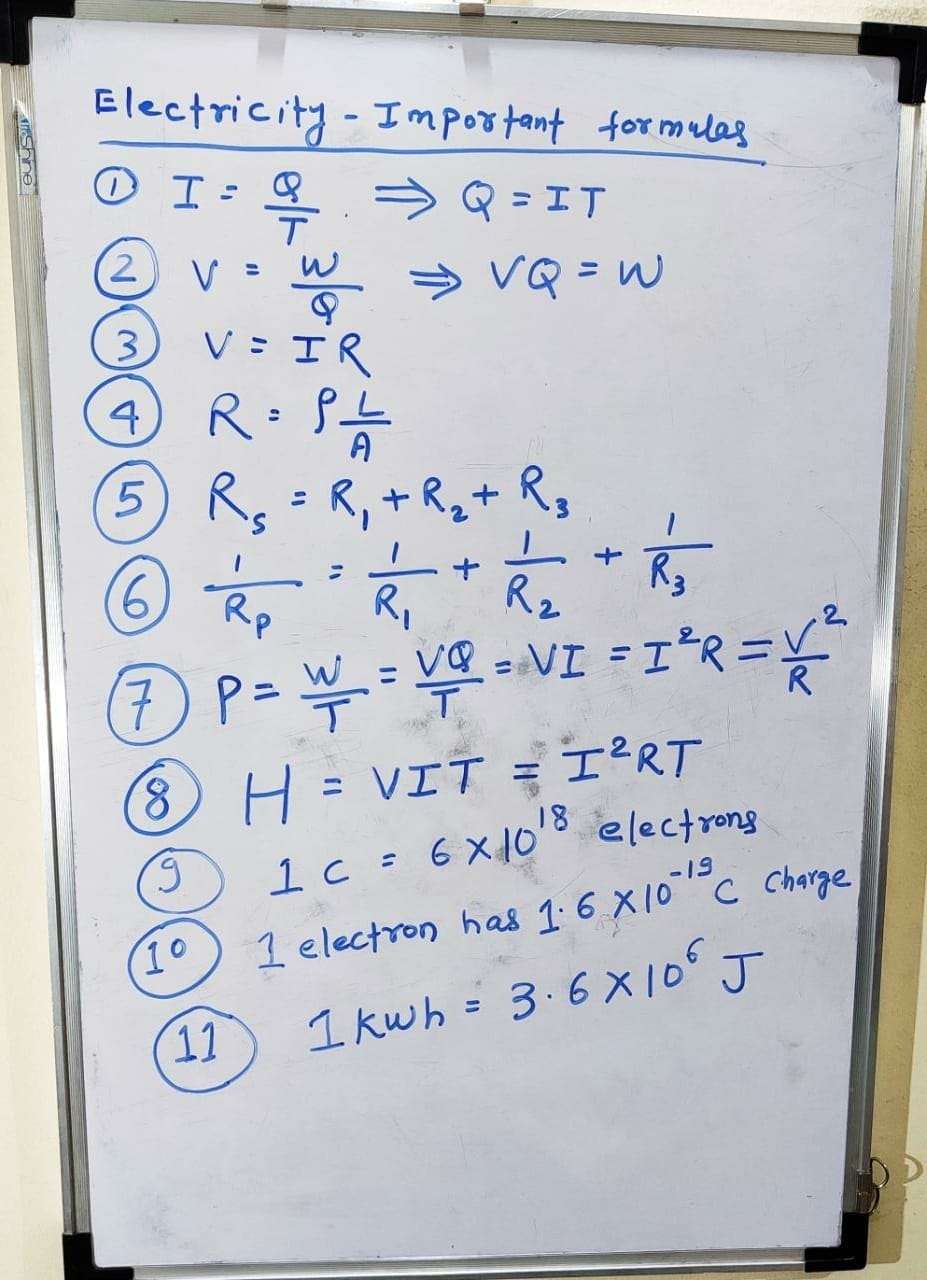 Electricity - Important formulas
① I = Q/T . ⇒ Q = IT
② V = W/Q ⇒ VQ = W
③ V = IR
④ R = ρ L/A
⑤ Rₛ = R₁ + R₂ + R₃
⑥ 1/Rₚ = 1/R₁ + 1/R₂ + 1/R₃
⑦ P = W/T = VQ/T = VI = I²R = V²/R
⑧ H = VIT = I²RT
⑨ 1 C = 6 X 10¹⁸ electrons
⑩ 1 electron has 1.6 X 10⁻¹⁹ C Charge
⑪ 1 kwh = 3.6 X 10⁶ J